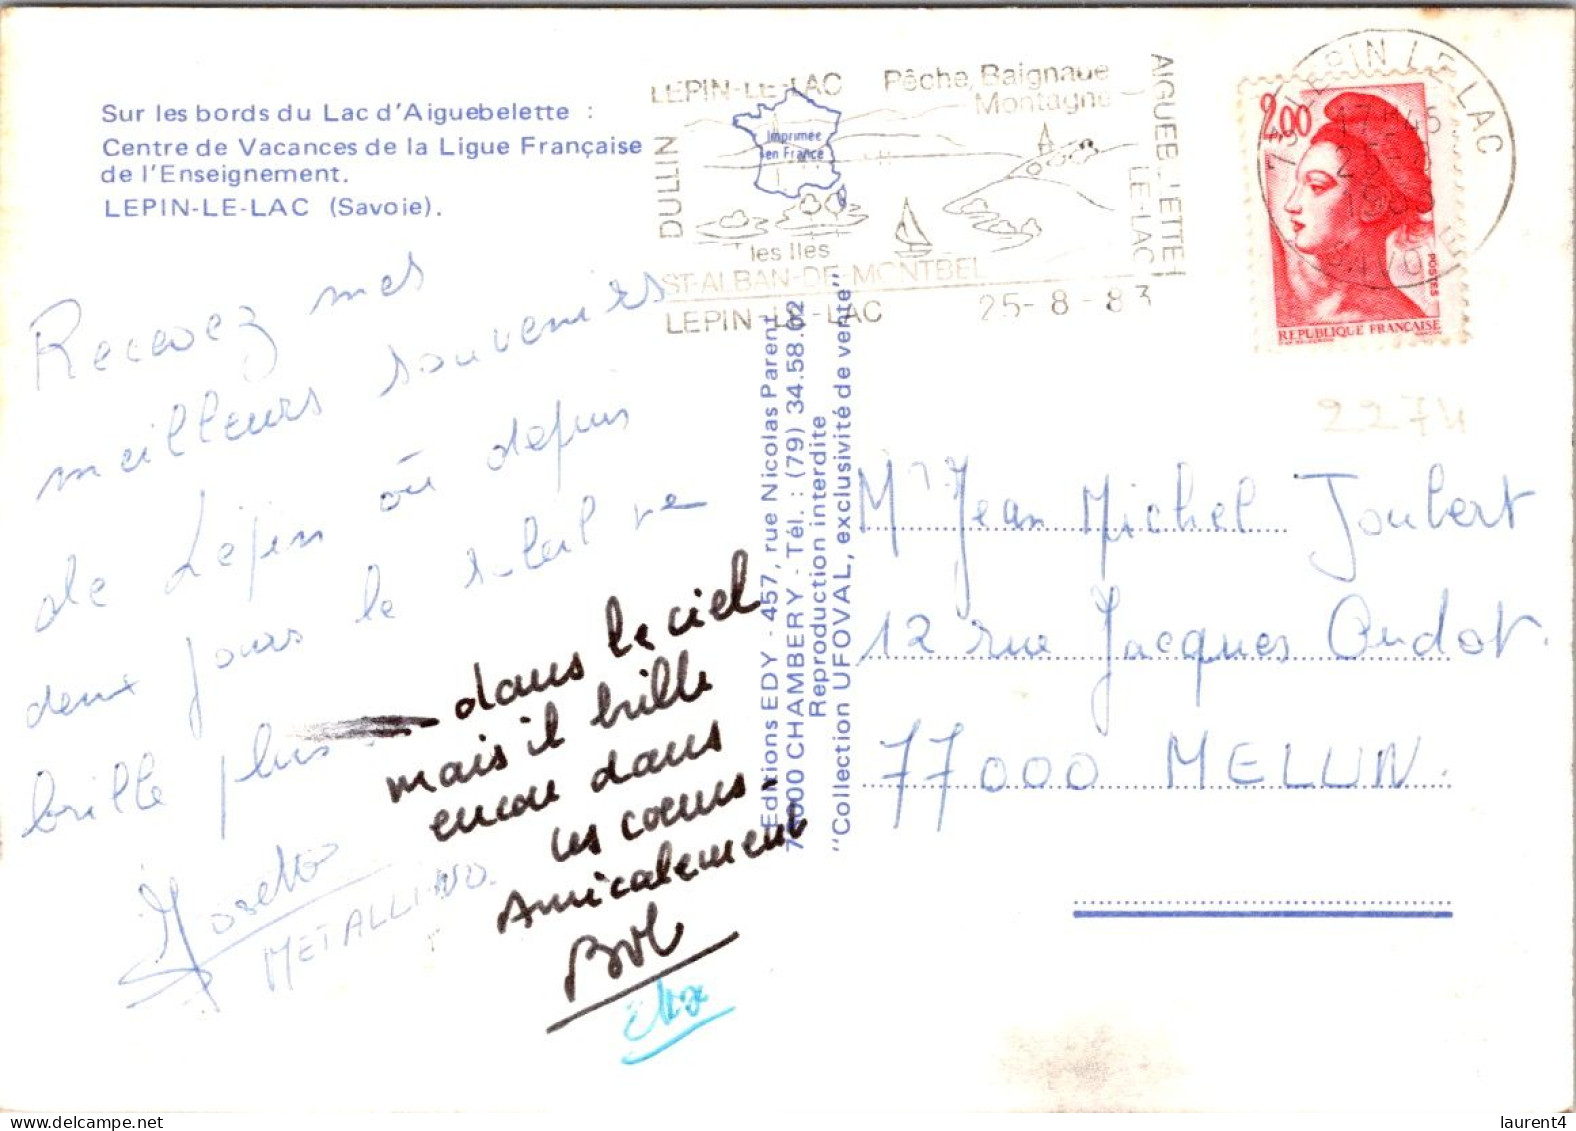 Sur les bords du Lac d'Aiguebelette :
Centre de Vacances de la Ligue Française
de l'Enseignement.
LEPIN-LE-LAC (Savoie).
LEPIN-LE-LAC
Pêche, Baignade
Montagne
DULLIN
AIGUEBELETTE
LE-LAC
Imprimée
en France
les Iles
ST-ALBAN-DE-MONTBEL
LEPIN-LE-LAC
25-8-83
73 LEPIN LE LAC
17H45
SAVOIE
2,00
POSTES
REPUBLIQUE FRANÇAISE
2274
Recevez mes
meilleurs souvenirs
de Lépin où depuis
deux jours le soleil ne
brille plus
dans le ciel
mais il brille
encore dans
les cœurs.
Amicalement
METALLINO.
Editions EDY - 457, rue Nicolas Parent
73000 CHAMBERY - Tél. : (79) 34.58.02
Reproduction interdite
"Collection UFOVAL, exclusivité de vente"
Mr Jean Michel Joubert
12 rue Jacques Oudot.
77000 MELUN.
laurent4